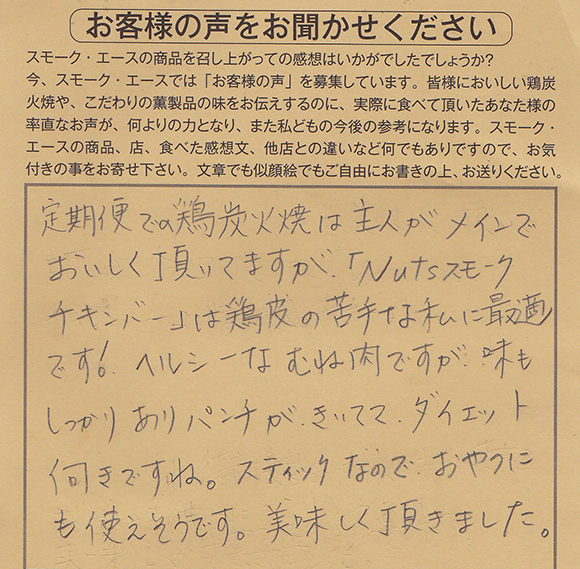 お客様の声をお聞かせください
スモーク・エースの商品を召し上がっての感想はいかがでしたでしょうか?
今、スモーク・エースでは「お客様の声」を募集しています。皆様においしい鶏炭
火焼や、こだわりの薫製品の味をお伝えするのに、実際に食べて頂いたあなた様の
率直なお声が、何よりの力となり、また私どもの今後の参考になります。スモーク・
エースの商品、店、食べた感想文、他店との違いなど何でもありですので、お気
付きの事をお寄せ下さい。文章でも似顔絵でもご自由にお書きの上、お送りください。
定期便での鶏炭火焼は主人がメインで
おいしく頂いてますが、「Nutsスモーク
チキンバー」は鶏皮の苦手な私に最適
です! ヘルシーなむね肉ですが、味も
しっかりありパンチが、きいてて、ダイエット
向きですね。スティックなので、おやつに
も使えそうです。美味しく頂きました。